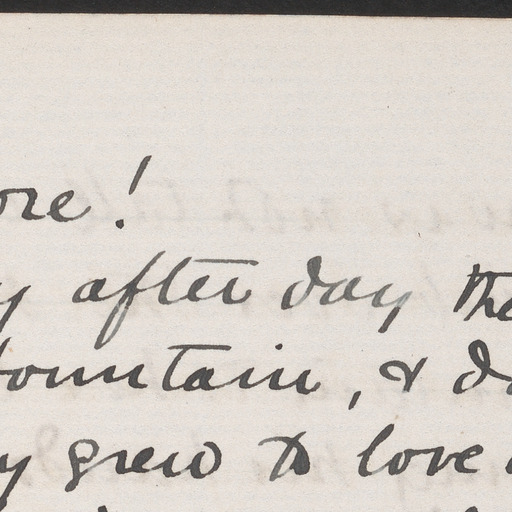 ore!
y after day the
ountain, & da
y grew to love